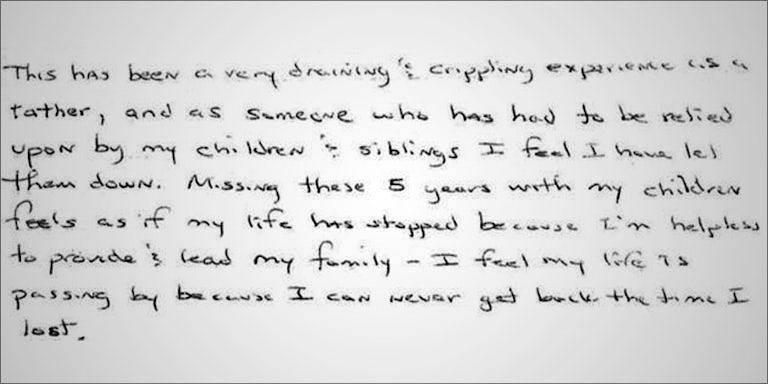 This has been a very draining & crippling experience as a
father, and as someone who has had to be relied
upon by my children & siblings I feel I have let
them down. Missing these 5 years with my children
feels as if my life has stopped because I'm helpless
to provide & lead my family - I feel my life is
passing by because I can never get back the time I
lost.